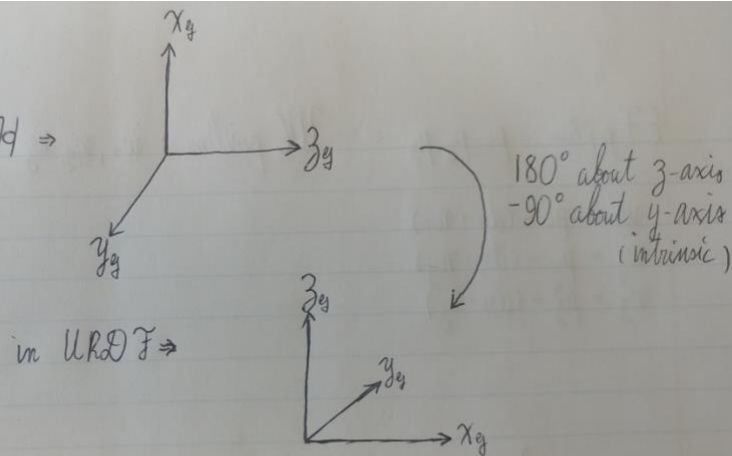 x_g
⇒
z_g
y_g
180° about z-axis
-90° about y-axis
(intrinsic)
in URDF ⇒
z_g
y_g
x_g